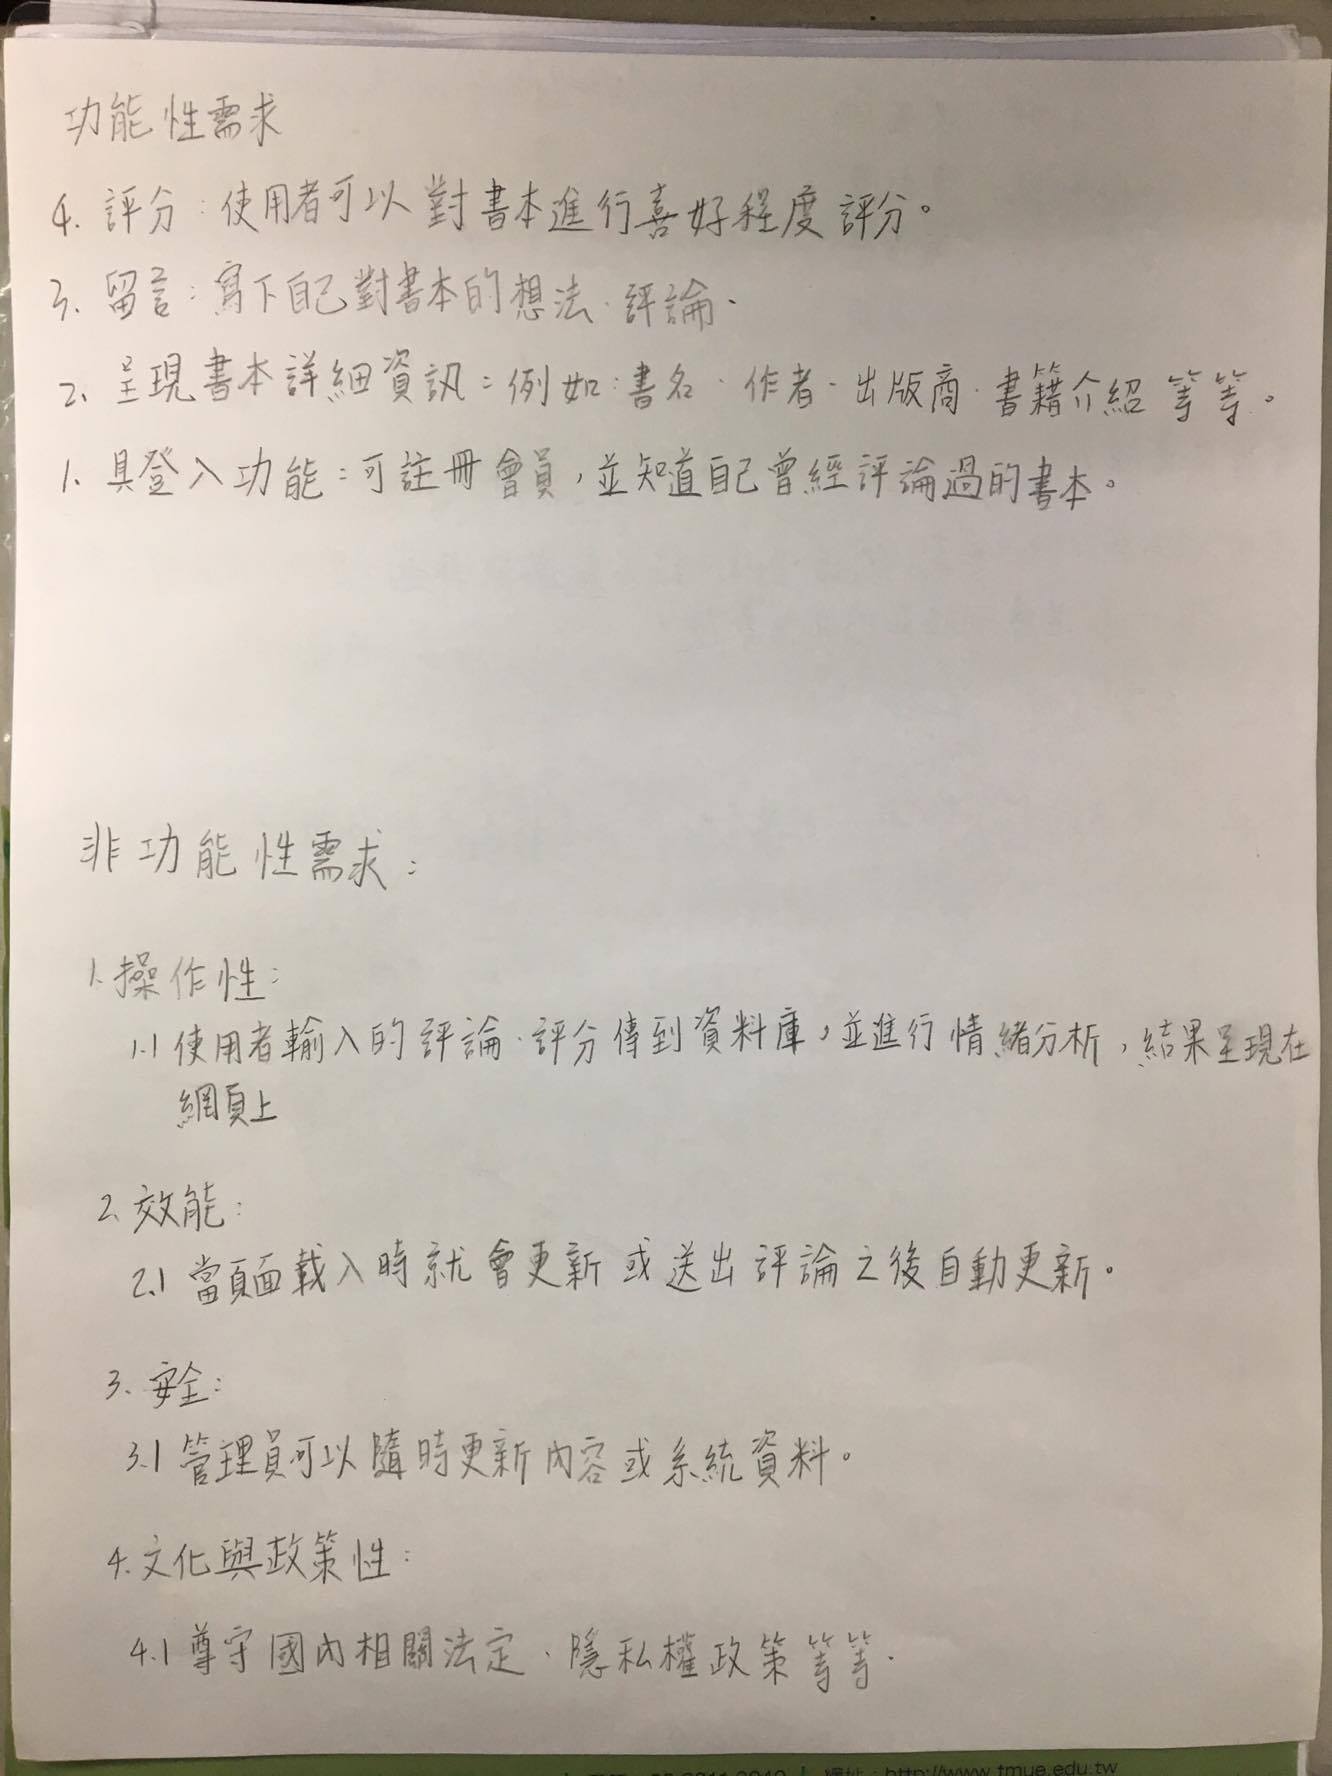 功能性需求
4. 評分：使用者可以對書本進行喜好程度評分。
3. 留言：寫下自己對書本的想法、評論。
2. 呈現書本詳細資訊：例如：書名、作者、出版商、書籍介紹等等。
1. 具登入功能：可註冊會員，並知道自己曾經評論過的書本。
非功能性需求：
1. 操作性：
1.1 使用者輸入的評論、評分傳到資料庫，並進行情緒分析，結果呈現在
網頁上
2. 效能：
2.1 當頁面載入時就會更新或送出評論之後自動更新。
3. 安全：
3.1 管理員可以隨時更新內容或系統資料。
4. 文化與政策性：
4.1 尊守國內相關法定、隱私權政策等等。
http://www.tmue.edu.tw